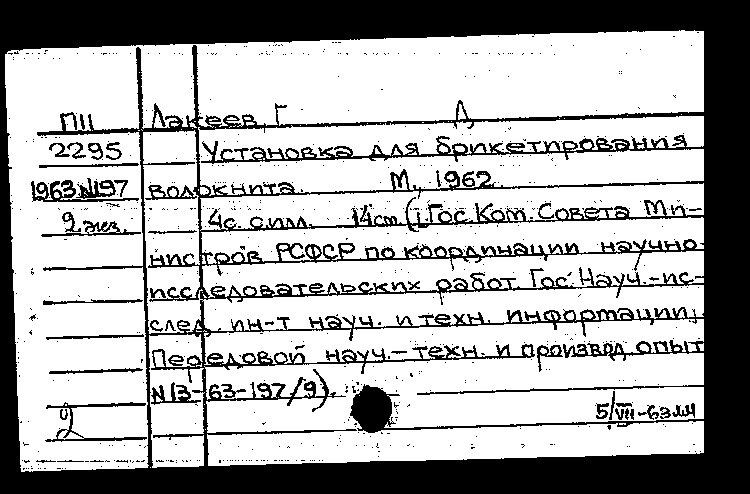 ПII Лакеев, Г Д,
2295 Установка для брикетирования
1963 N197 волокнита. М., 1962
2 экз. 4с. с илл. 14cm (1. Гос. Ком. Совета Ми-
нистров РСФСР по координации научно-
исследовательских работ. Гос. Науч.-ис-
след. ин-т науч. и техн. информации.
Передовой науч.-техн. и произвд. опыт
N 13-63-197/9).
2 5/VII-63